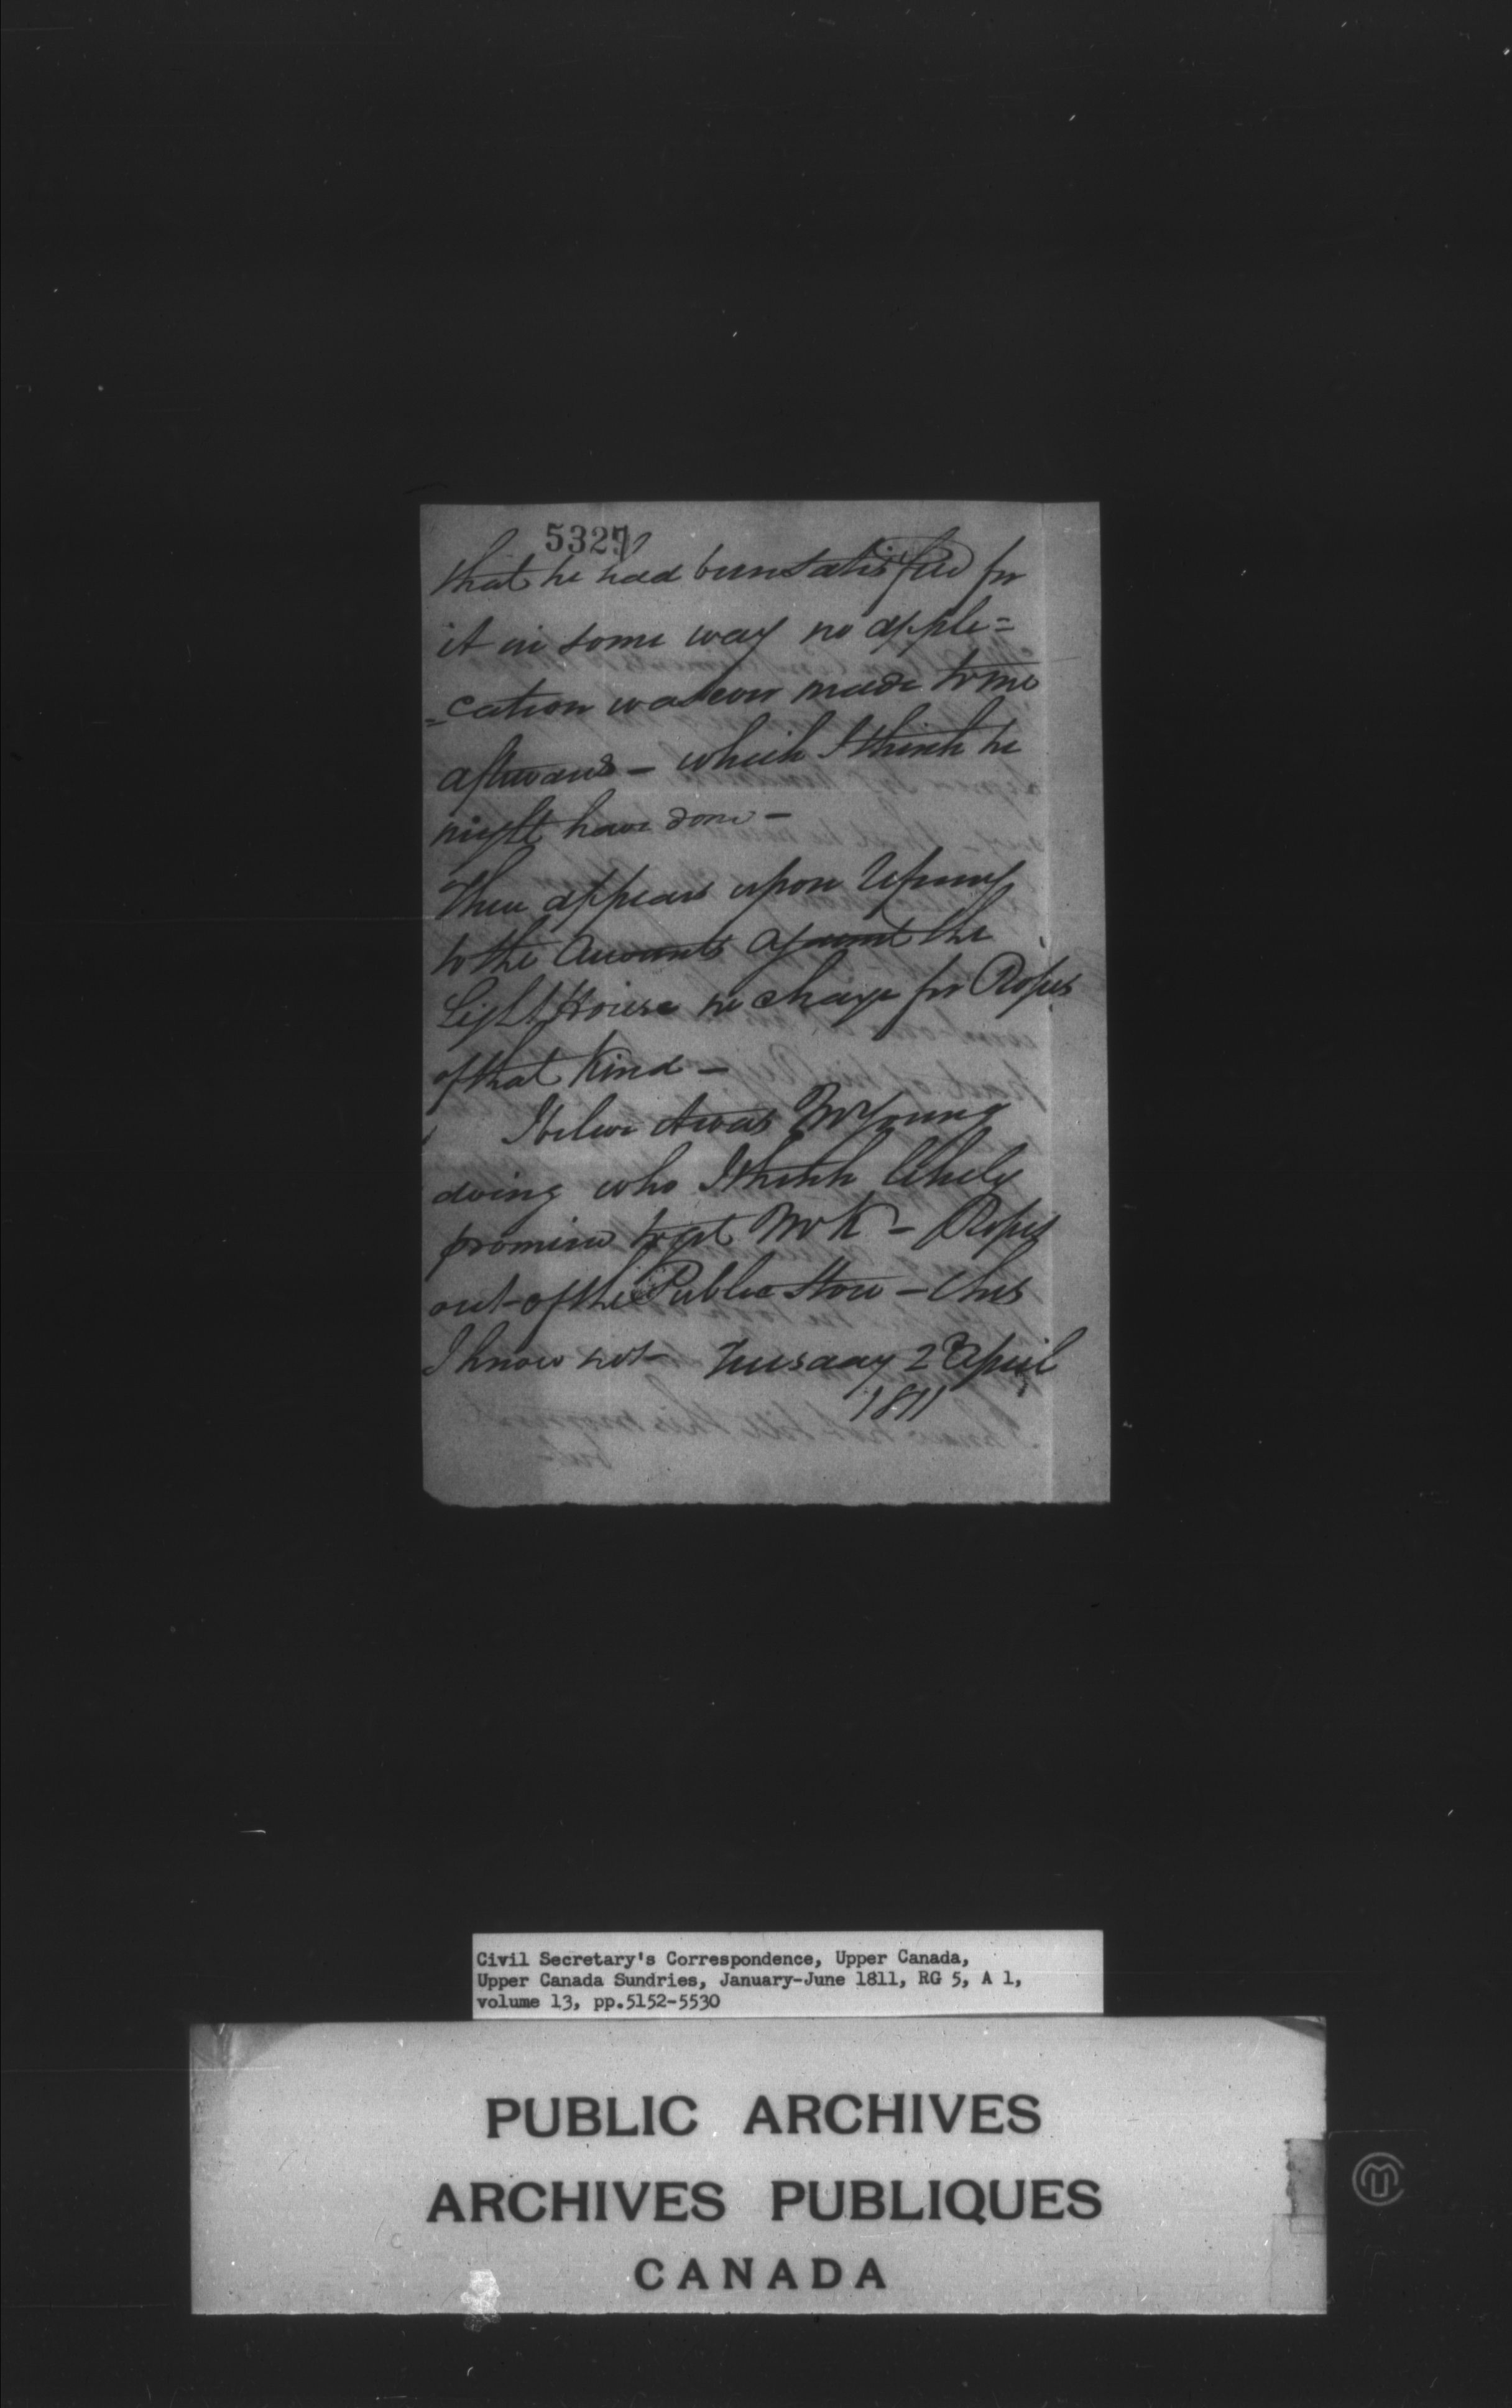 5327
that he had been satisfied for
it in some way no appli=
=cation was ever made to me
afterwards – which I think he
might have done –
There appears upon refering
to the Accounts against the
Light House no charge for Ropes
of that kind –
I beleive it was Mr Young
doing who I think likely
promised to get Mr K – Ropes
out of the Public Store – this
I know not – Tuesday 2d April
1811
Civil Secretary's Correspondence, Upper Canada,
Upper Canada Sundries, January-June 1811, RG 5, A 1,
volume 13, pp.5152-5530
PUBLIC ARCHIVES
ARCHIVES PUBLIQUES
CANADA